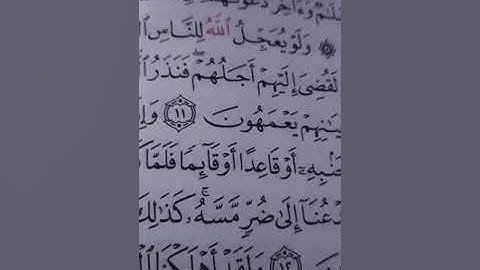 سَلَٰمٌ وَءَاخِرُ دَعْوَىٰهُمْ
۞ وَلَوْ يُعَجِّلُ ٱللَّهُ لِلنَّاسِ
لَقُضِىَ إِلَيْهِمْ أَجَلُهُمْ ۖ فَنَذَرُ
يَعْمَهُونَ ١١
أَوْ قَاعِدًا أَوْ قَآئِمًا فَلَمَّا
إِلَىٰ ضُرٍّ مَّسَّهُۥ ۚ كَذَٰلِكَ
١٢ وَلَقَدْ أَهْلَكْنَا